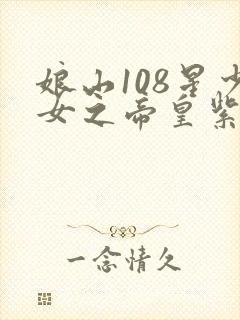 娘山108星少
女之帝皇紫
一念情久